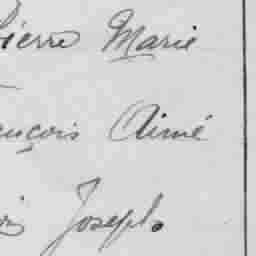 Pierre Marie
ançois Aimé
Joseph